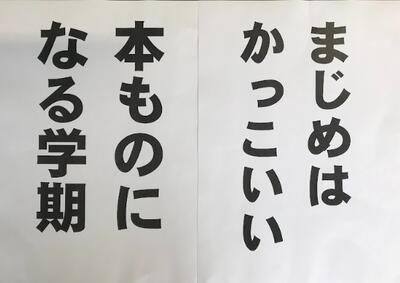 まじめは
かっこいい
本ものに
なる学期